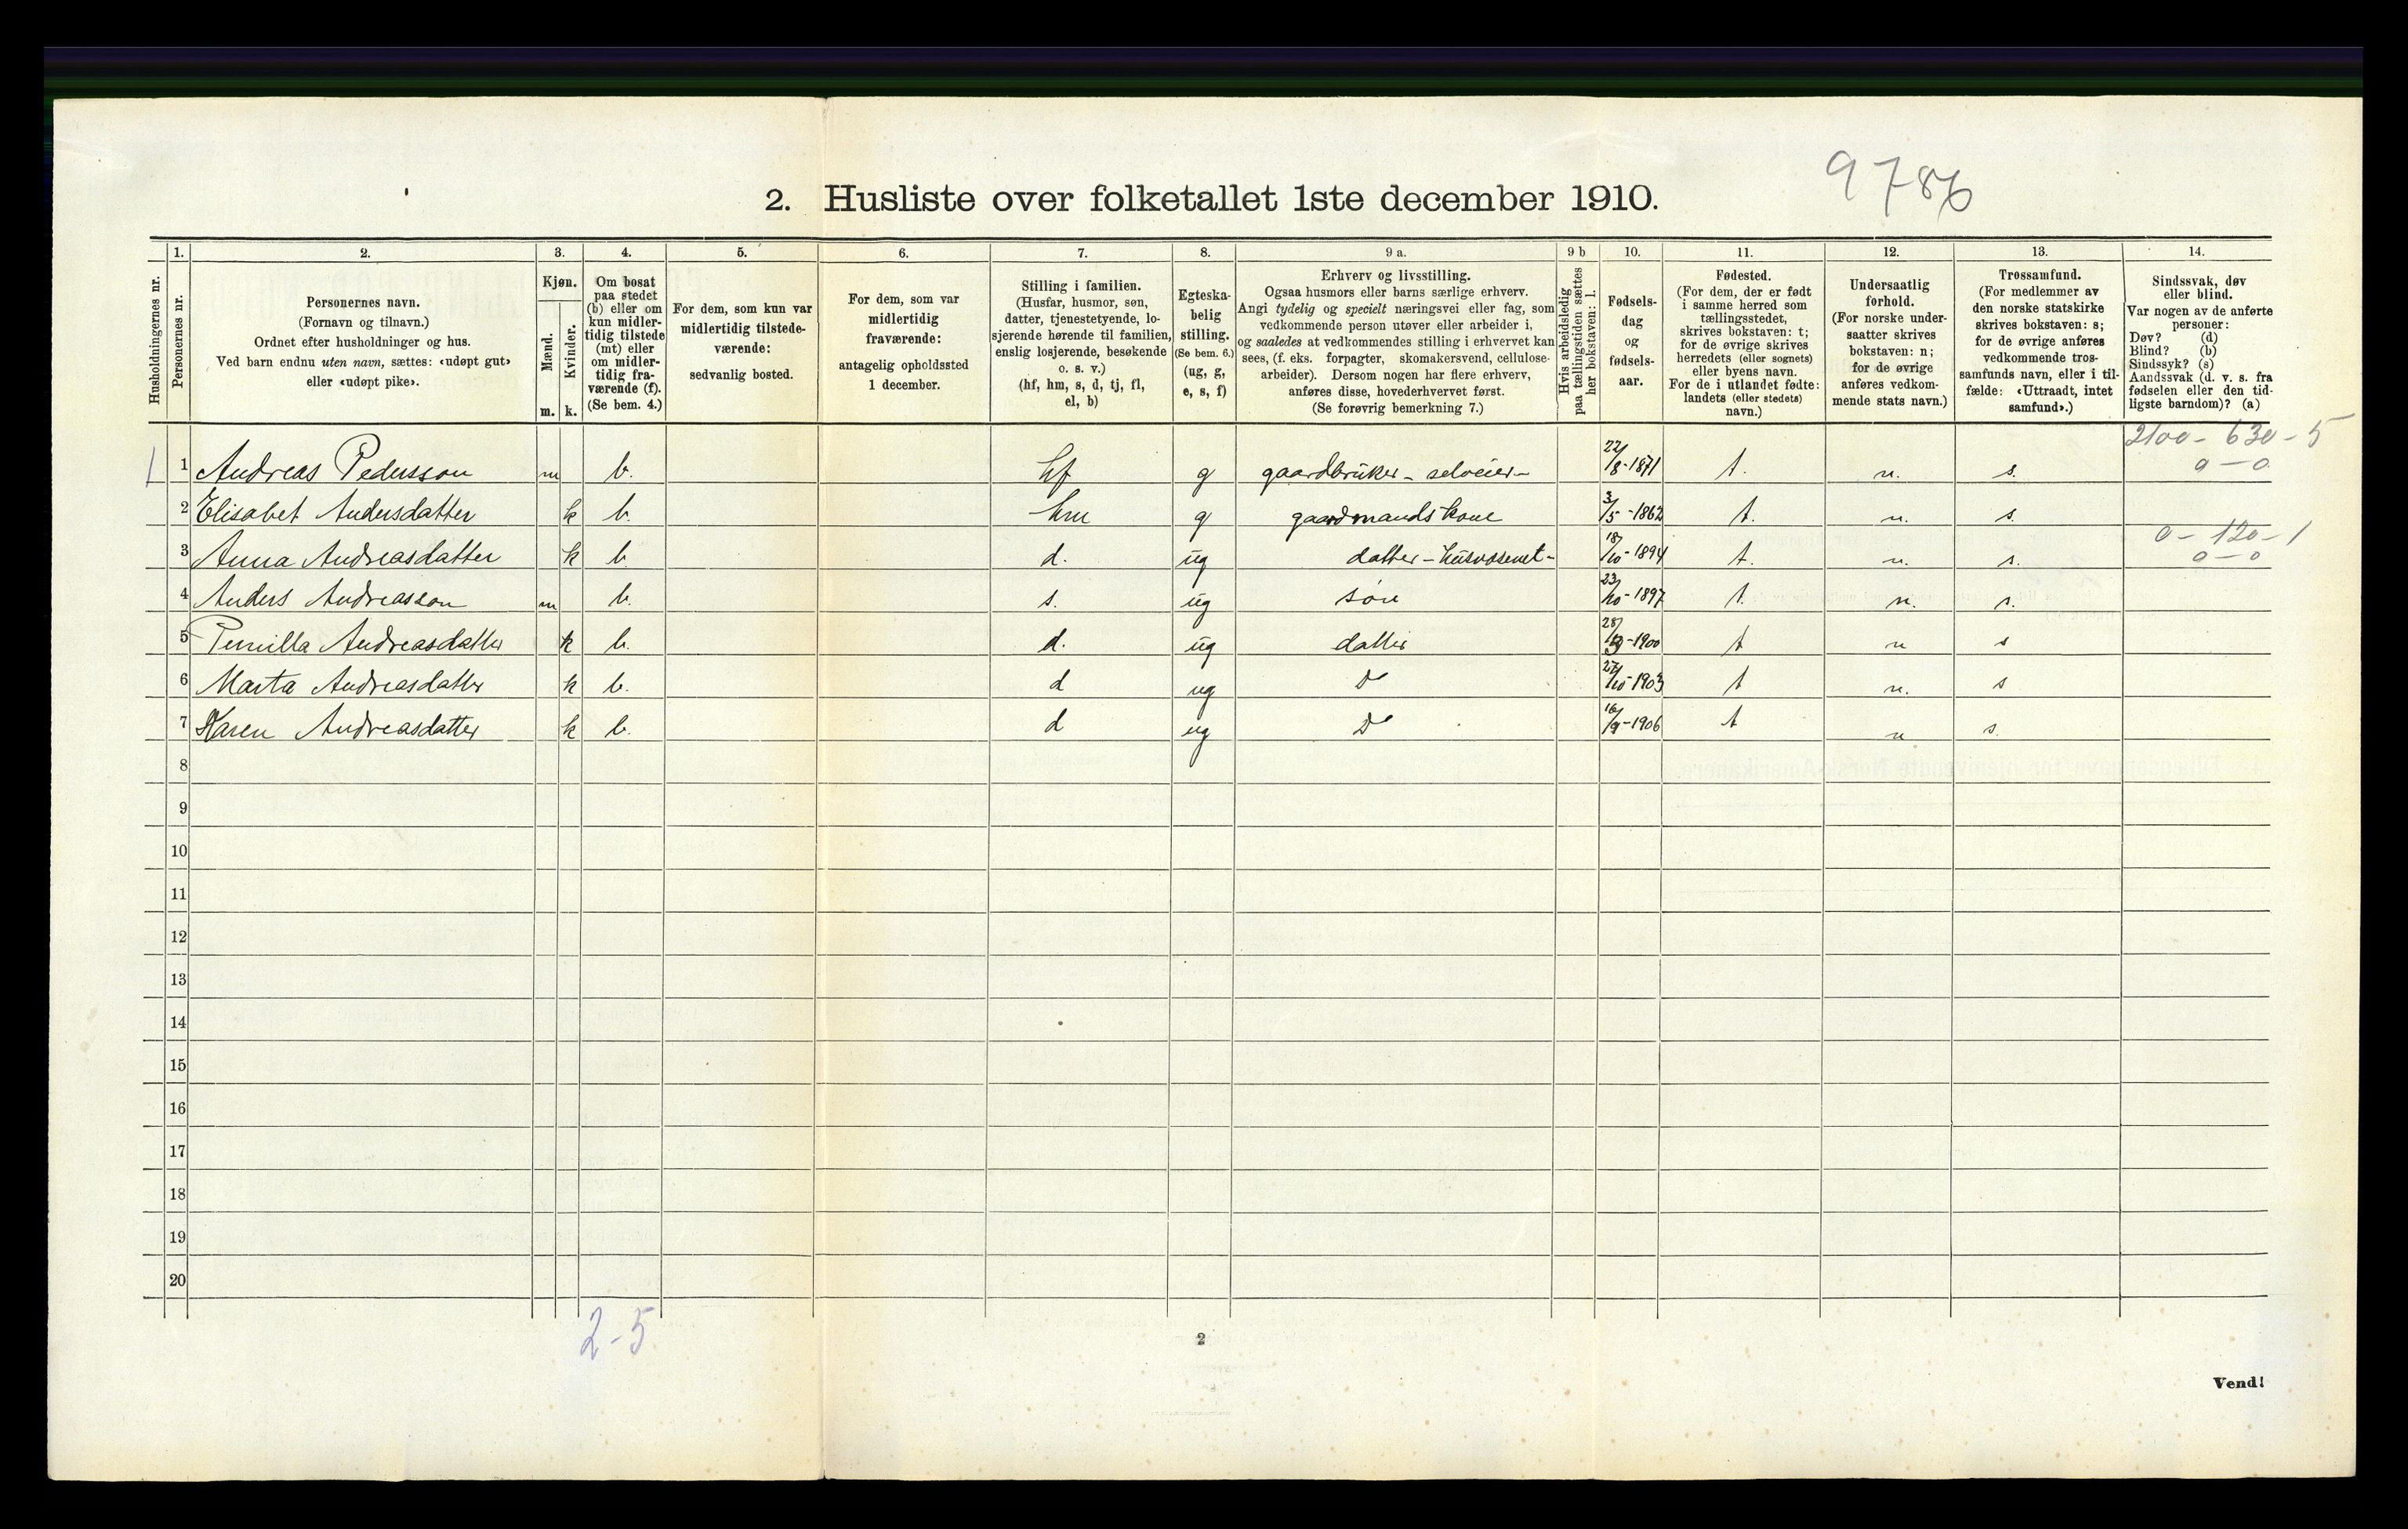 9786
2. Husliste over folketallet 1ste december 1910.
Husholdningernes nr.
1. Personernes nr.
2. Personernes navn. (Fornavn og tilnavn.) Ordnet efter husholdninger og hus. Ved barn endnu uten navn, sættes: «udøpt gut» eller «udøpt pike».
3. Kjøn. Mænd. m. Kvinder. k.
4. Om bosat paa stedet (b) eller om kun midler-tidig tilstede (mt) eller om midler-tidig fra-værende (f). (Se bem. 4.)
5. For dem, som kun var midlertidig tilstede-værende: sedvanlig bosted.
6. For dem, som var midlertidig fraværende: antagelig opholdssted 1 december.
7. Stilling i familien. (Husfar, husmor, søn, datter, tjenestetyende, lo-sjerende hørende til familien, enslig losjerende, besøkende o. s. v.) (hf, hm, s, d, tj, fl, el, b)
8. Egteska-belig stilling. (Se bem. 6.) (ug, g, e, s, f)
9 a. Erhverv og livsstilling. Ogsaa husmors eller barns særlige erhverv. Angi tydelig og specielt næringsvei eller fag, som vedkommende person utøver eller arbeider i, og saaledes at vedkommendes stilling i erhvervet kan sees, (f. eks. forpagter, skomakersvend, cellulose-arbeider). Dersom nogen har flere erhverv, anføres disse, hovederhvervet først. (Se forøvrig bemerkning 7.)
9 b Hvis arbeidsledig paa tællingstiden sættes her bokstaven: l.
10. Fødsels-dag og fødsels-aar.
11. Fødested. (For dem, der er født i samme herred som tællingsstedet, skrives bokstaven: t; for de øvrige skrives herredets (eller sognets) eller byens navn. For de i utlandet fødte: landets (eller stedets) navn.)
12. Undersaatlig forhold. (For norske under-saatter skrives bokstaven: n; for de øvrige anføres vedkom-mende stats navn.)
13. Trossamfund. (For medlemmer av den norske statskirke skrives bokstaven: s; for de øvrige anføres vedkommende tros-samfunds navn, eller i til-fælde: «Uttraadt, intet samfund».)
14. Sindssvak, døv eller blind. Var nogen av de anførte personer: Døv? (d) Blind? (b) Sindssyk? (s) Aandssvak (d. v. s. fra fødselen eller den tid-ligste barndom)? (a)
2100 - 630 - 5
1 1 Andreas Pedersson m b. hf g gaardbruker - selveier - 22/8-1871 t. n. s. 0 - 0
2 Elisabet Andersdatter k b. hm g gaardmandskone 3/5-1862 t. n. s.
0 - 120 - 1
3 Anna Andreasdatter k b. d. ug datter - husvæsenet - 18/10-1894 t. n. s. 0 - 0
4 Anders Andreasson m b. s. ug søn 23/10-1897 t. n. s.
5 Pernilla Andreasdatter k b. d. ug datter 28/ -1900 t n s
6 Marta Andreasdatter k b. d ug Do 27/10-1903 t n. s
7 Karen Andreasdatter k b. d ug Do 16/9-1906 t n s.
8
9
10
11
12
13
14
15
16
17
18
19
20
2-5
2
Vend!